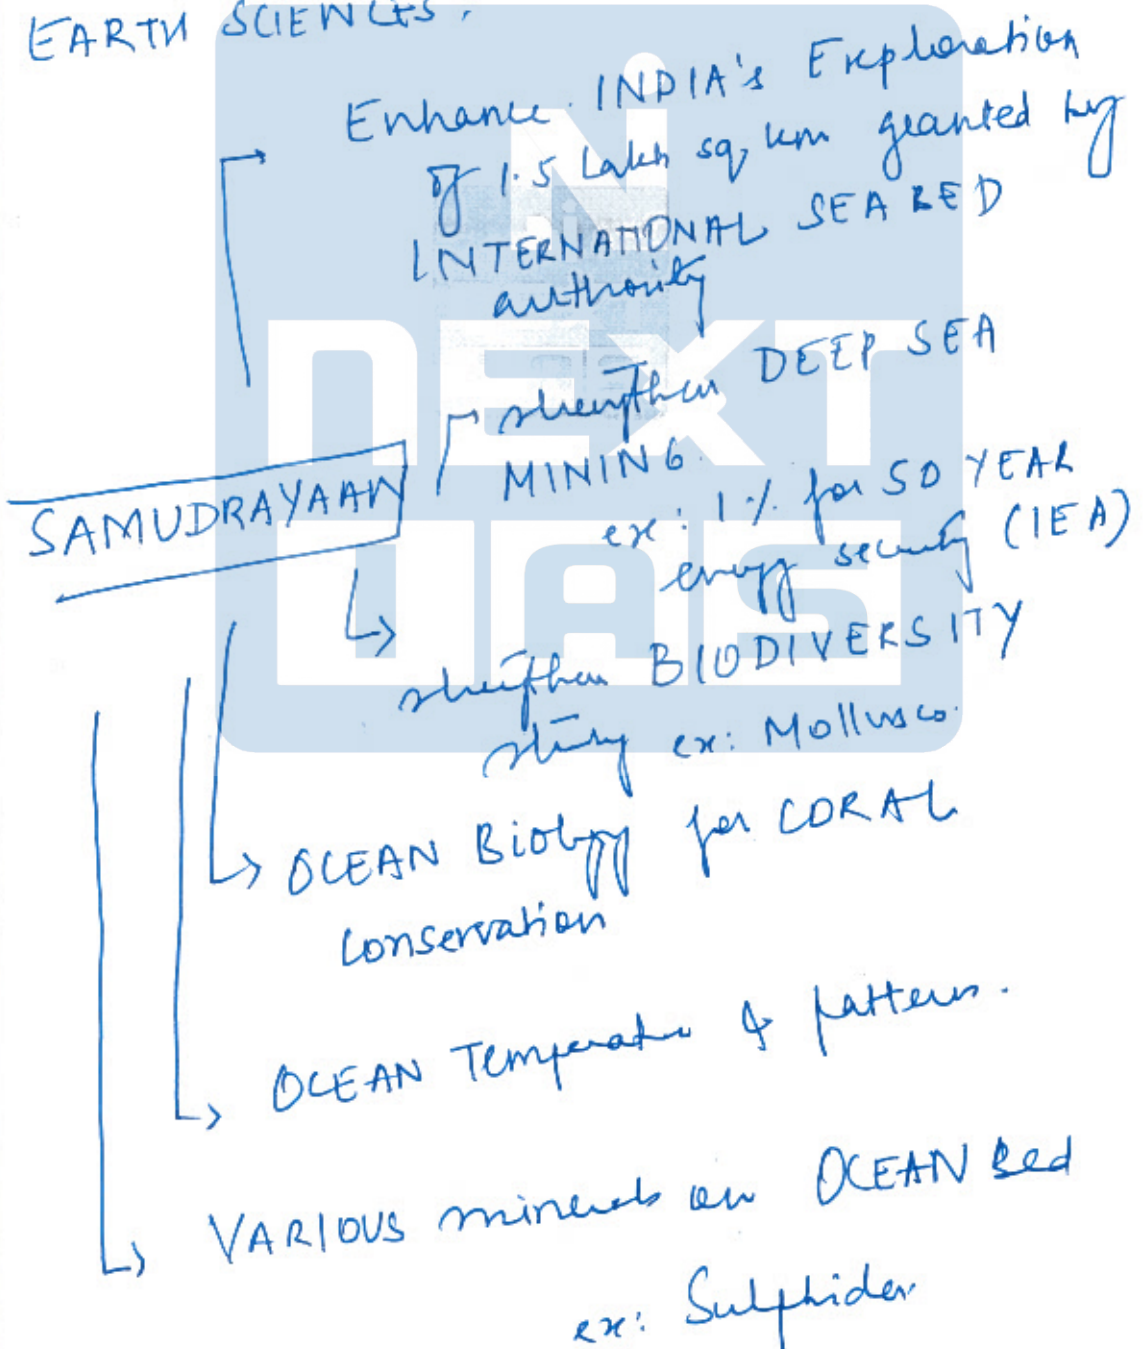 EARTH SCIENCES.
Enhance INDIA's Exploration
of 1.5 Lakh sq, km granted by
INTERNATIONAL SEA BED
authority
strengthen DEEP SEA
MINING.
ex: 1% for 50 YEAR
energy security (IEA)
SAMUDRAYAAN
strengthen BIODIVERSITY
study ex: Mollusca.
OCEAN Biology for CORAL
conservation
OCEAN Temperature & patterns.
VARIOUS minerals on OCEAN Bed
ex: Sulphides
N
NEXT
IAS